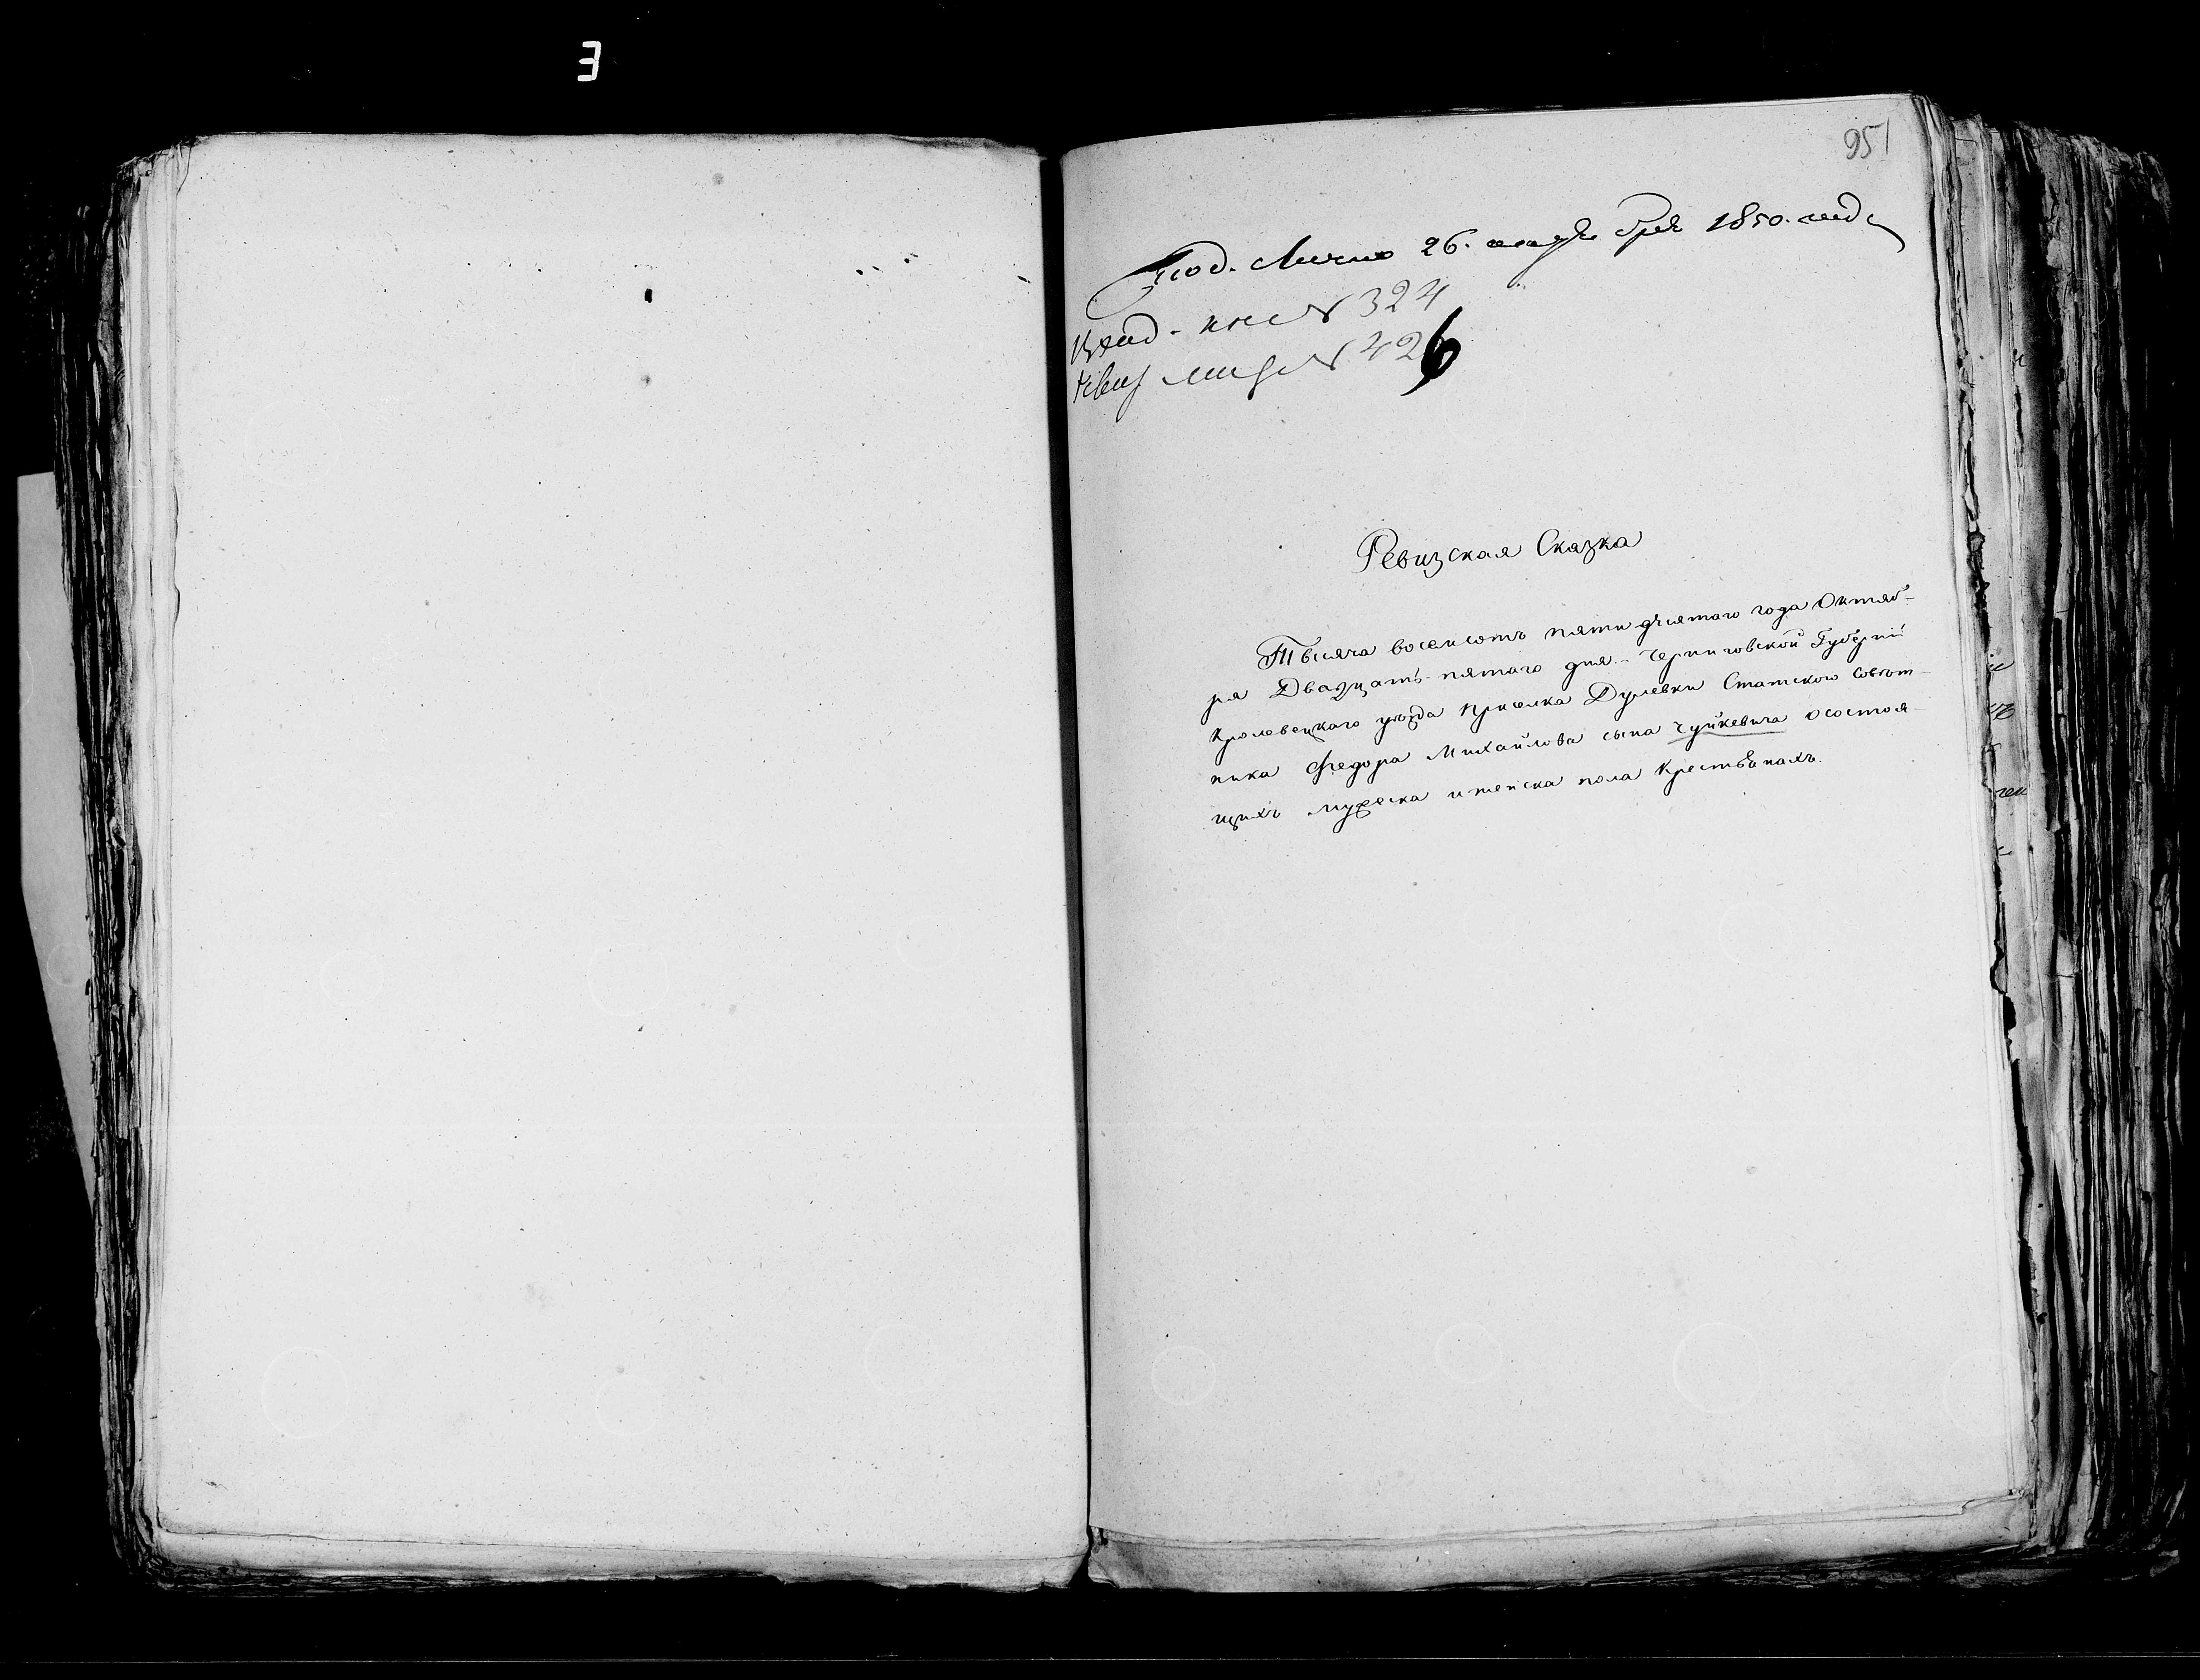 Э
951
Под. Лично 26. октября 1850. года
Вход. кни № 324
Квит № 426
Ревизская Сказка
Тысяча восемсотъ пятидѣсятаго года Октяб-
ря Двадцать пятаго дня. Черниговской Губерніи
Кролевецкаго уѣзда приселка Дулевки Статского Совѣт-
ника Федора Михайлова сына Чуйкевича осостоя-
щихъ мужеска и женска пола Крестьѣнахъ.